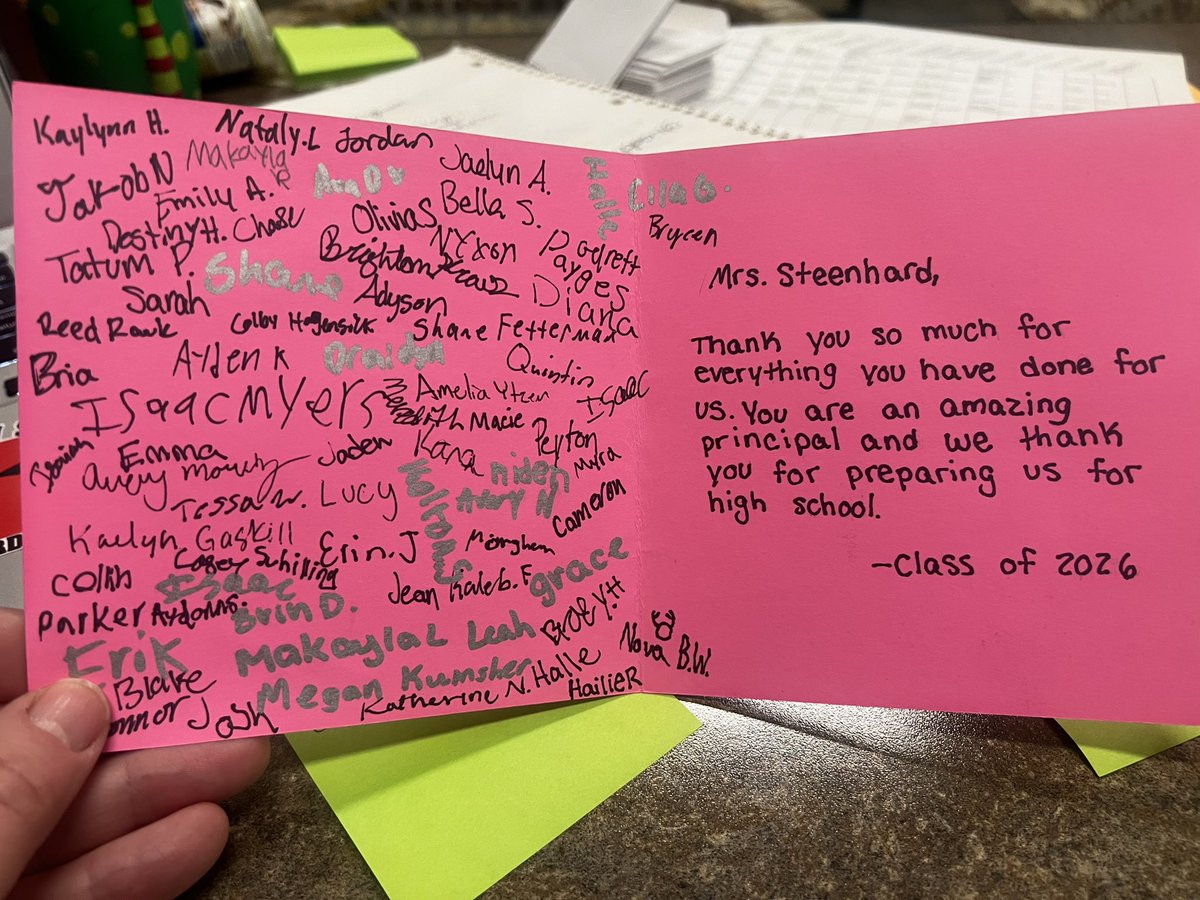 Kaylynn H.
Nataly.L
Jordan
Jakob N
Makayla R
Ava D
Jaelyn A.
Halle
Ella G.
Emily A.
Olivia S
Bella S.
Brycen
Destiny H.
Chase
Nyxon
Padgett
Tatum P.
Shane
Brighton
Payge S
Sarah
Adyson
Diana
Reed Rauk
Colby
Shane Fetterman
Bria
Ayden K
Draidyn
Quintin
Isaac Myers
Meredith
Amelia Yteen
Isaac
Macie
Emma
Jaden
Kana
Peyton
Avery
Aiden
Myra
Tessa W.
Lucy
Avery H
Cameron
Kaelyn Gaskill
Erin.J
Colin
Casey Schilling
Isaac
Jean
Kaleb.F
grace
Parker
Brin D.
Erik
Makayla L
Leah
Nova B.W.
Blake
Megan Kumsher
Halle
Josh
Katherine N.
Hailie R
Mrs. Steenhard,
Thank you so much for
everything you have done for
us. You are an amazing
principal and we thank
you for preparing us for
high school.
-Class of 2026